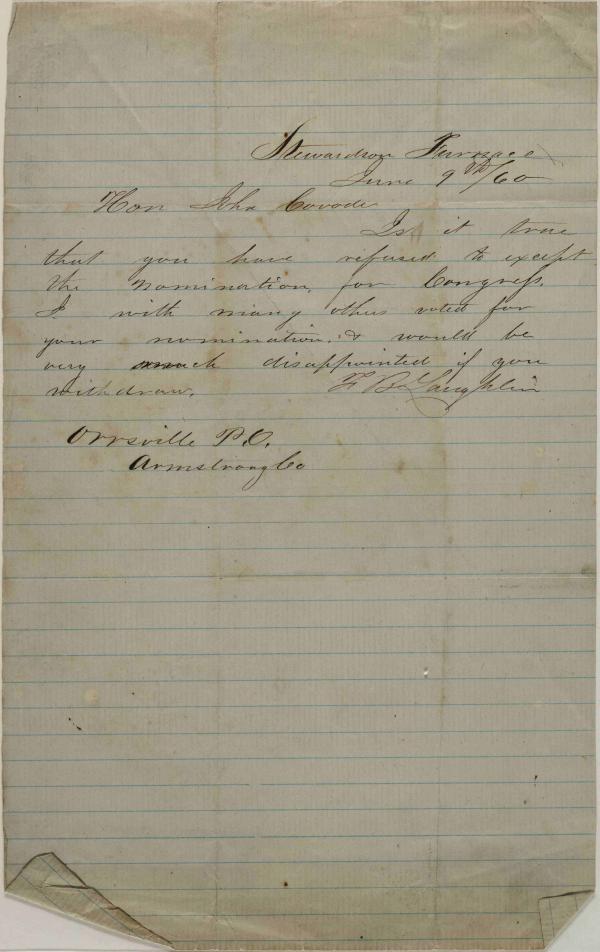 Stewardson Furnace
June 9th/60
Hon Jhn Covode
Is it true
that you have refused to except
the nomination, for Congress.
I with many others voted for
your nomination. & would be
very much disappointed if you
withdraw. F B McLaughlin
Orrsville P.O.
Armstrong Co